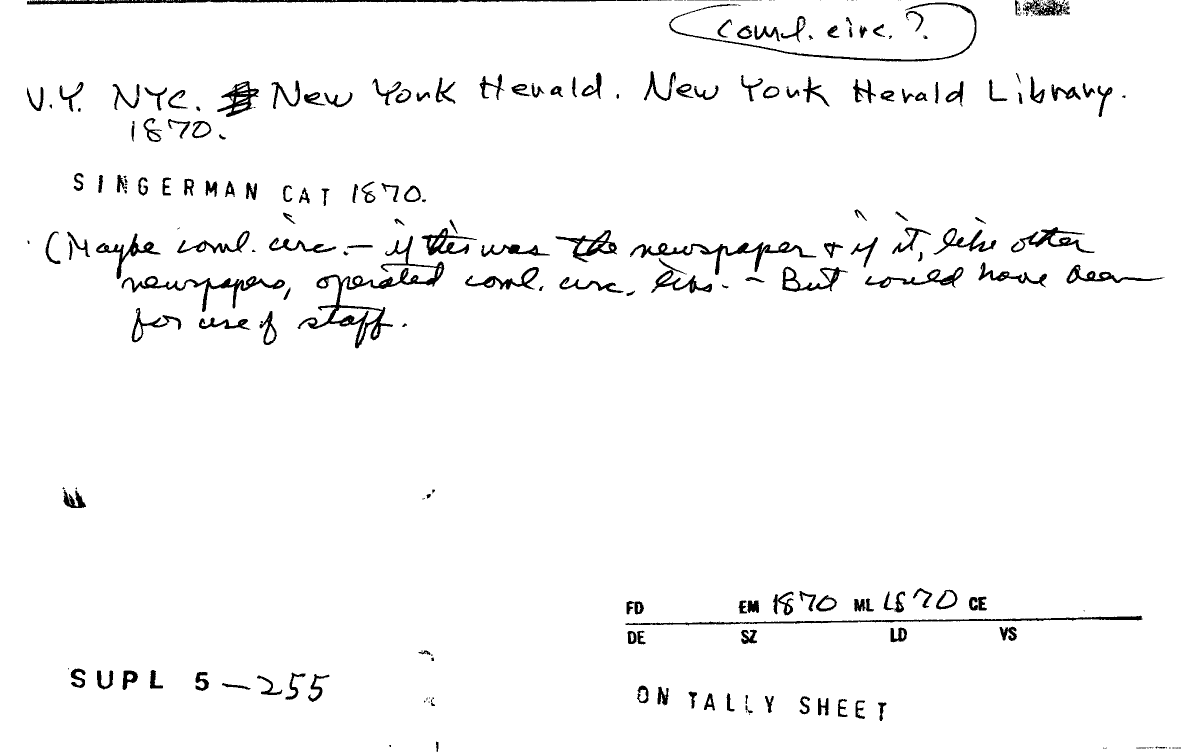 coml. circ.?
N.Y. NYC. New York Herald. New York Herald Library.
1870.
SINGERMAN CAT 1870.
(Maybe coml. circ. — if this was the newspaper & if it, like other
newspapers, operated coml. circ. libs. – But could have been
for use of staff.
FD EM 1870 ML 1870 CE
DE SZ LD VS
SUPL 5—255
ON TALLY SHEET